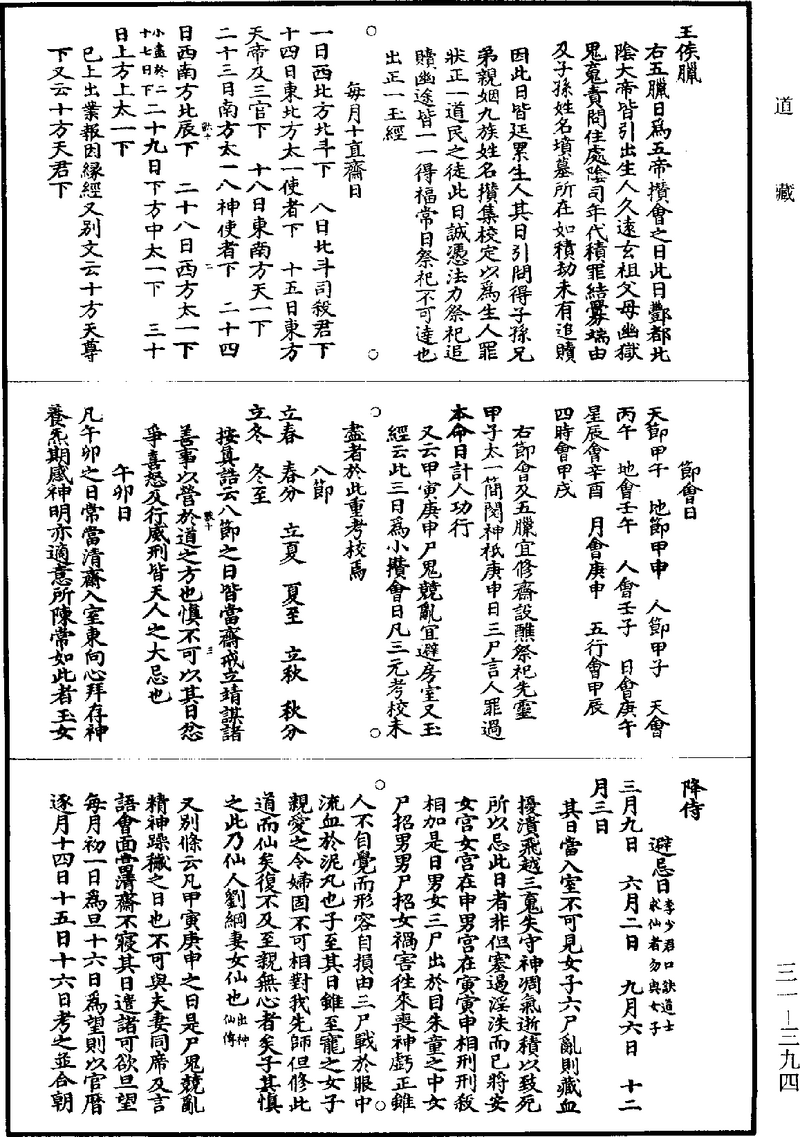 道藏
三一—三九四
王侯臘
右五臘日為五帝攢會之日此日酆都北
陰大帝皆引出生人久遠玄祖父母幽獄
鬼䰟責問住處陰司年代積罪結釁端由
及子孫姓名墳墓所在如積劫未有追贖
因此日皆延累生人其日引問得子孫兄
弟親姻九族姓名攢集校定以為生人罪
狀正一道民之徒此日誠憑法力祭祀追
贖幽途皆一一得福常日祭祀不可達也
出正一玉經
每月十直齋日
一日西北方北斗下　八日北斗司殺君下
十四日東北方太一使者下　十五日東方
天帝及三官下　十八日東南方天一下
二十三日南方太一八神使者下　二十四
日西南方北辰下　二十八日西方太一下
小盡於二十七日下　二十九日下方中太一下　三十
日上方上太一下
已上出業報因緣經又別文云十方天尊
下又云十方天君下
節會日
天節甲午　地節甲申　人節甲子　天會
丙午　地會壬午　人會壬子　日會庚午
星辰會辛酉　月會庚申　五行會甲辰
四時會甲戌
右節會及五臘宜修齋設醮祭祀先靈
甲子太一簡閱神祇庚申日三尸言人罪過
本命日計人功行
又云甲寅庚申尸鬼競亂宜避房室又玉
經云此三日為小攢會日凡三元考校未
盡者於此重考校焉
八節
立春　春分　立夏　夏至　立秋　秋分
立冬　冬至
按真誥云八節之日皆當齋戒立靖謀諸
善事以營於道之方也慎不可以其日忿
爭喜怒及行威刑皆天人之大忌也
午卯日
凡午卯之日常當清齋入室東向心拜存神
養炁期感神明亦適意所陳常如此者玉女
降侍
避忌日李少君口訣道士求仙者勿與女子
三月九日　六月二日　九月六日　十二
月三日
其日當入室不可見女子六尸亂則藏血
擾潰飛越三䰟失守神凋氣逝積以致死
所以忌此日者非但塞遏淫泆而已將安
女宮女宮在申男宮在寅寅申相刑刑殺
相加是日男女三尸出於目朱童之中女
尸招男男尸招女禍害往來喪神虧正雖
人不自覺而形容自損由三尸戰於眼中
流血於泥丸也子至其日雖至寵之女子
親愛之令婦固不可相對我先師但修此
道而仙矣復不及至親無心者矣子其慎
之此乃仙人劉綱妻女仙也出神仙傳
又別條云凡甲寅庚申之日是尸鬼競亂
精神躁穢之日也不可與夫妻同席及言
語會面當清齋不寢其日遣諸可欲旦望
每月初一日為旦十六日為望則以官曆
逐月十四日十五日十六日考之並合朝